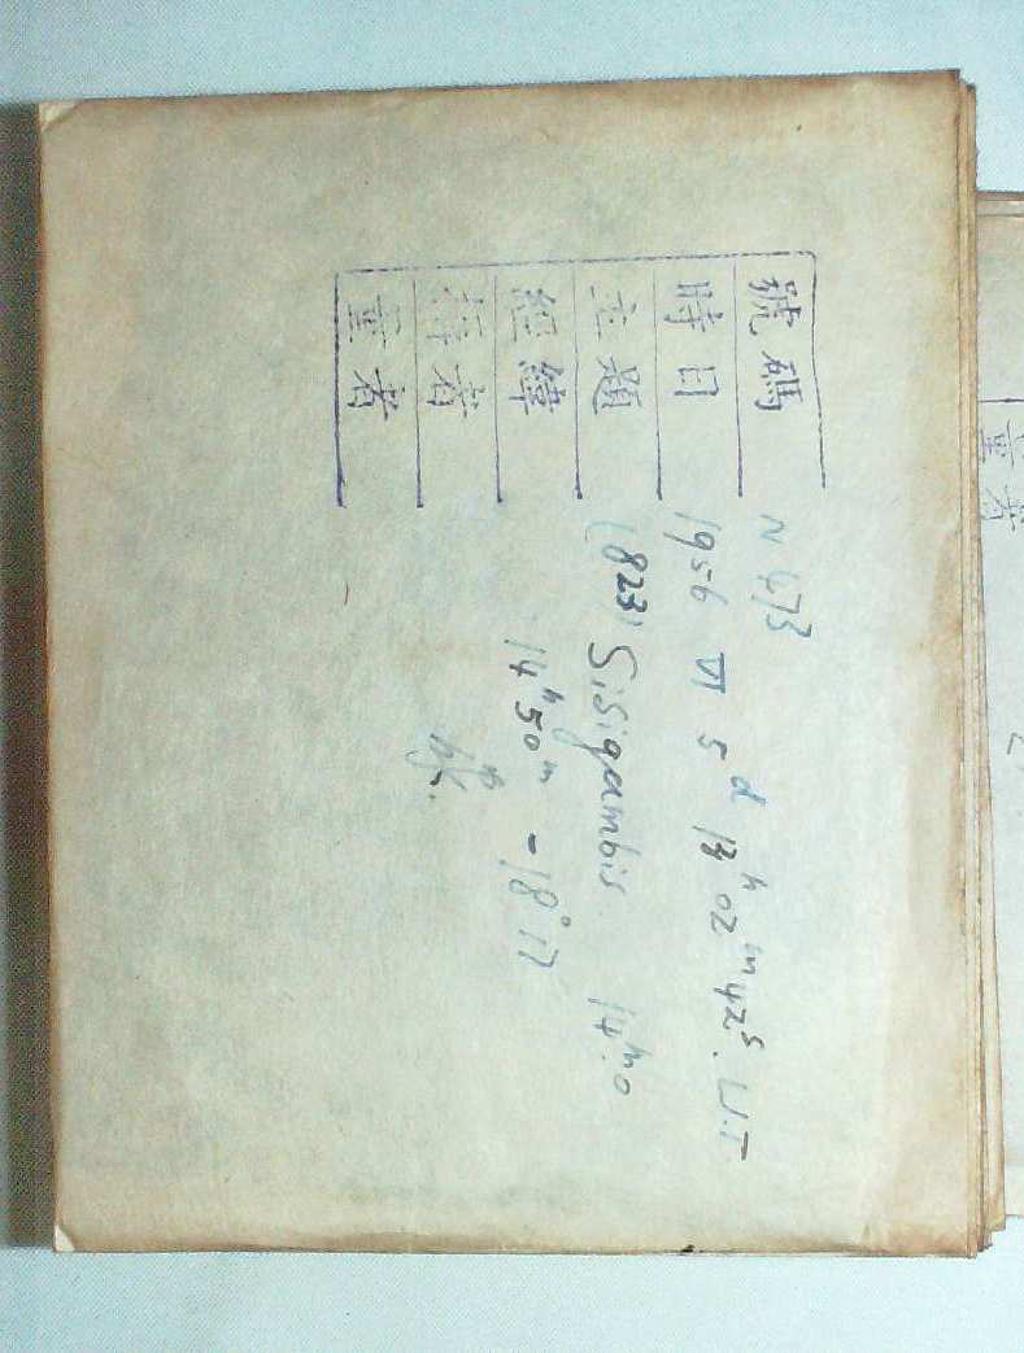 號碼 N 473
時日 1956 VI 5 d 13h 02m 42s. U.T
主題 (823) Sisigambis 14m.0
經緯 14h 50m -18° 17
者
量者
量者